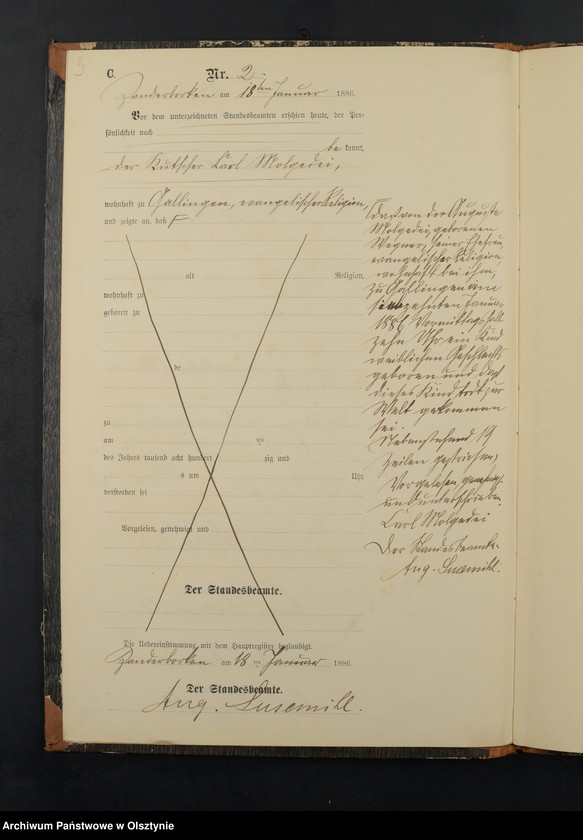 C.
Nr. 2.
Zanderborken am 18ten Januar 1886.
Vor dem unterzeichneten Standesbeamten erschien heute, der Per-
sönlichkeit nach
be kannt,
der Kutscher Carl Molgedei,
wohnhaft zu Gallingen, evangelischer Religion,
und zeigte an, daß
alt Religion,
wohnhaft zu
geboren zu
de
zu
am ten
des Jahres tausend acht hundert zig und
s um Uhr
verstorben sei
Vorgelesen, genehmigt und
Der Standesbeamte.
daß von der Auguste
Molgedei, geborenen
Wegner, seiner Ehefrau,
evangelischer Religion,
wohnhaft bei ihm,
zu Gallingen am
siebzehnten Januar
1886 Vormittags halb
zehn Uhr ein Kind
weiblichen Geschlechts
geboren und daß
dieses Kind todt zur
Welt gekommen
sei.
Nebenstehend 19
Zeilen gestrichen,
Vorgelesen, genehmigt
und unterschrieben
Carl Molgedei
Der Standesbeamte.
Aug. Susemihl.
Die Uebereinstimmung mit dem Hauptregister beglaubigt.
Zanderborken am 18 ten Januar 1886.
Der Standesbeamte.
Aug. Susemihl.
Archiwum Państwowe w Olsztynie